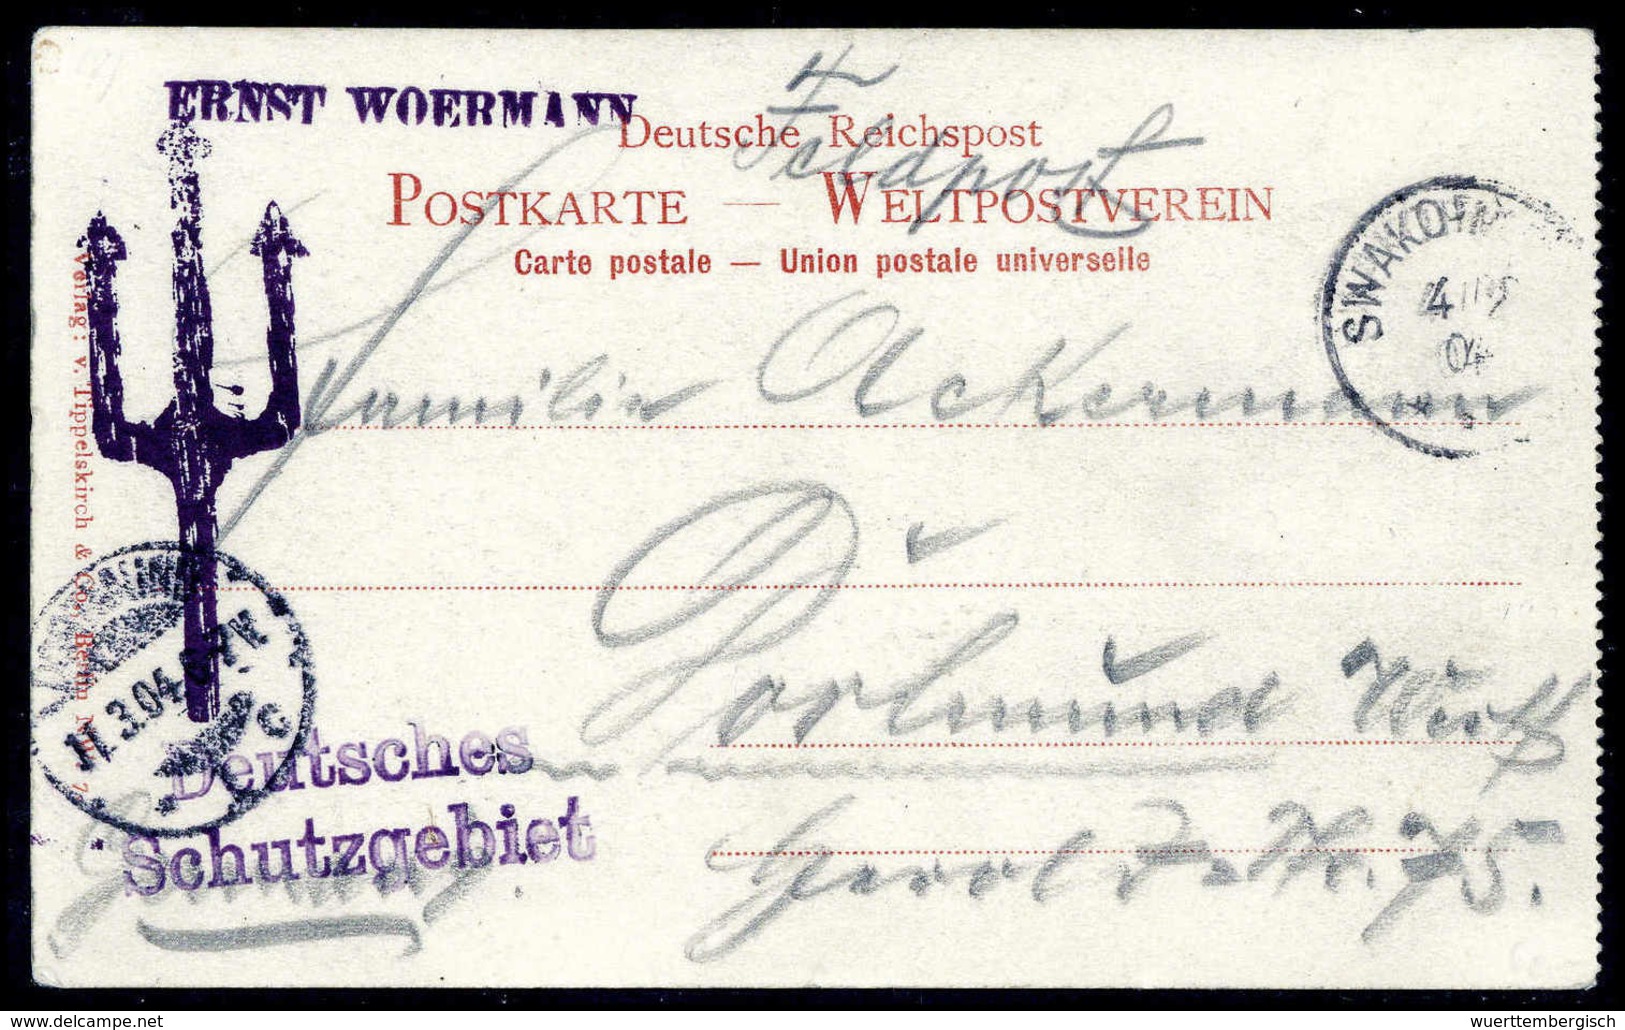 ERNST WOERMANN
Feldpost
Deutsche Reichspost
POSTKARTE — WELTPOSTVEREIN
Carte postale — Union postale universelle
SWAKOPM
4
04
Familie Ackermann
Dortmund
Verlag: v. Tippelskirch & Co., Berlin N.W. 7
11.3.04. 6-7N
c
Deutsches
Schutzgebiet
Germany
delcampe.net
wuerttembergisch